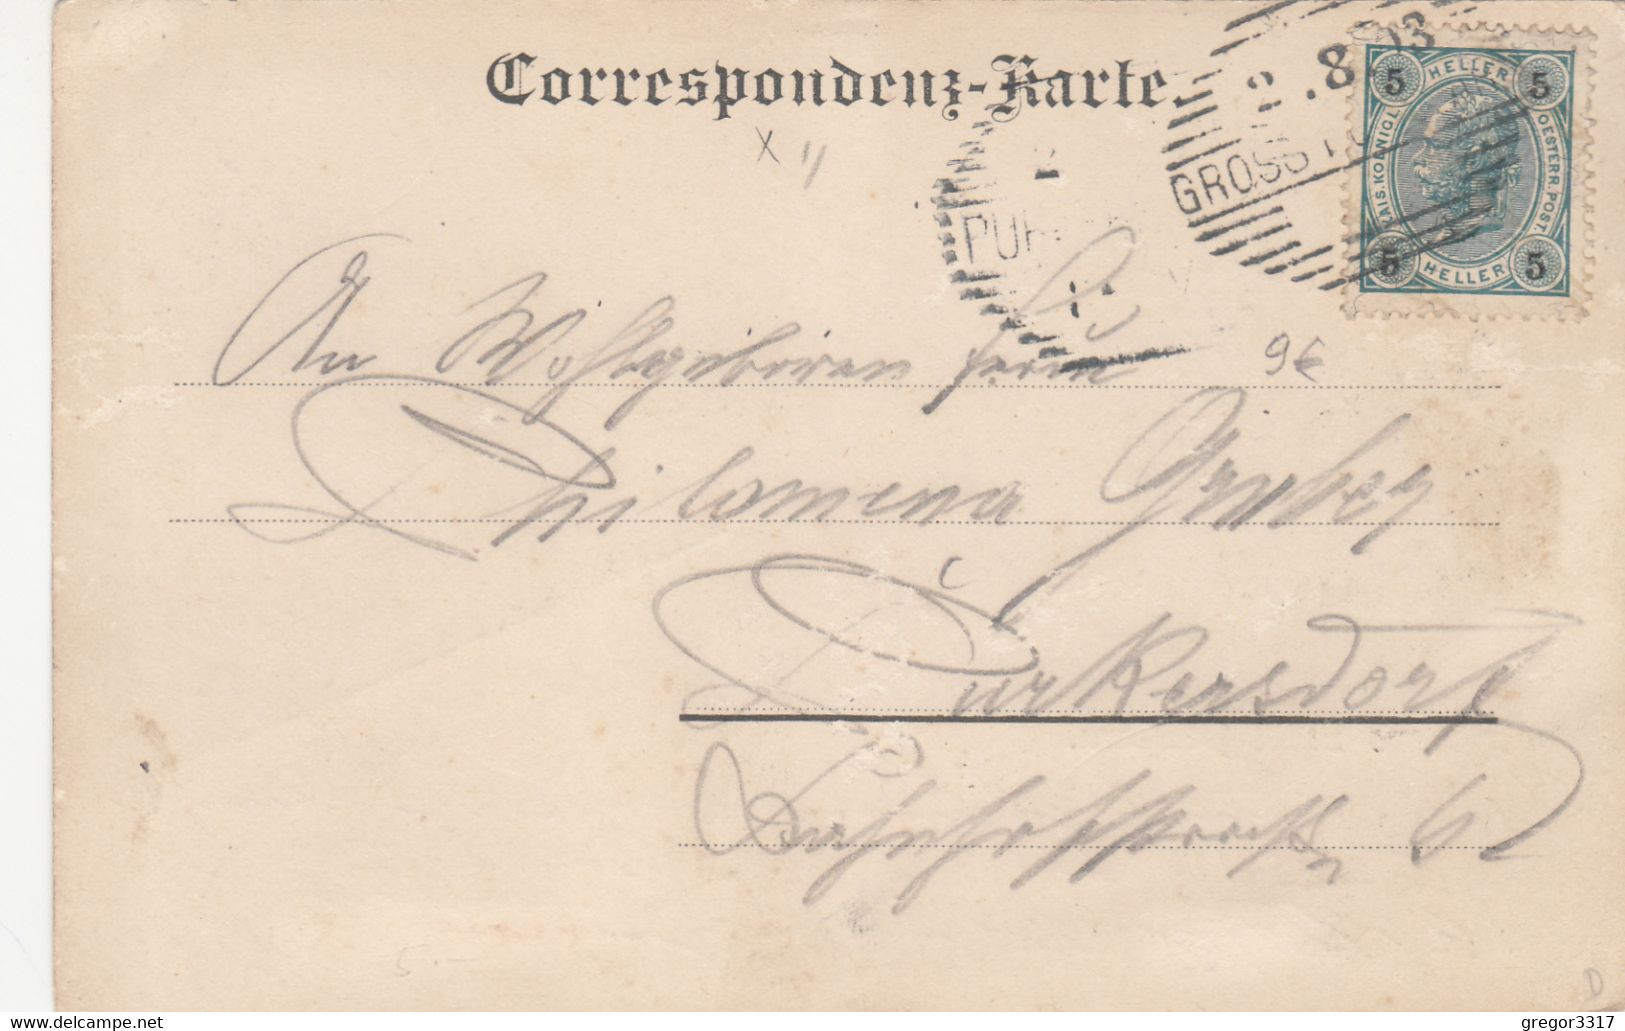 Correspondenz-Karte.
2.8.03
GROSS
PUR
5 HELLER 5
KAIS. KOENIGL. OESTERR. POST.
5 HELLER 5
An Wohlgeboren
9€
Philomena Gruber
Purkersdorf
Bahnhofstrasse 62
5.-
D
delcampe.net
gregor3317